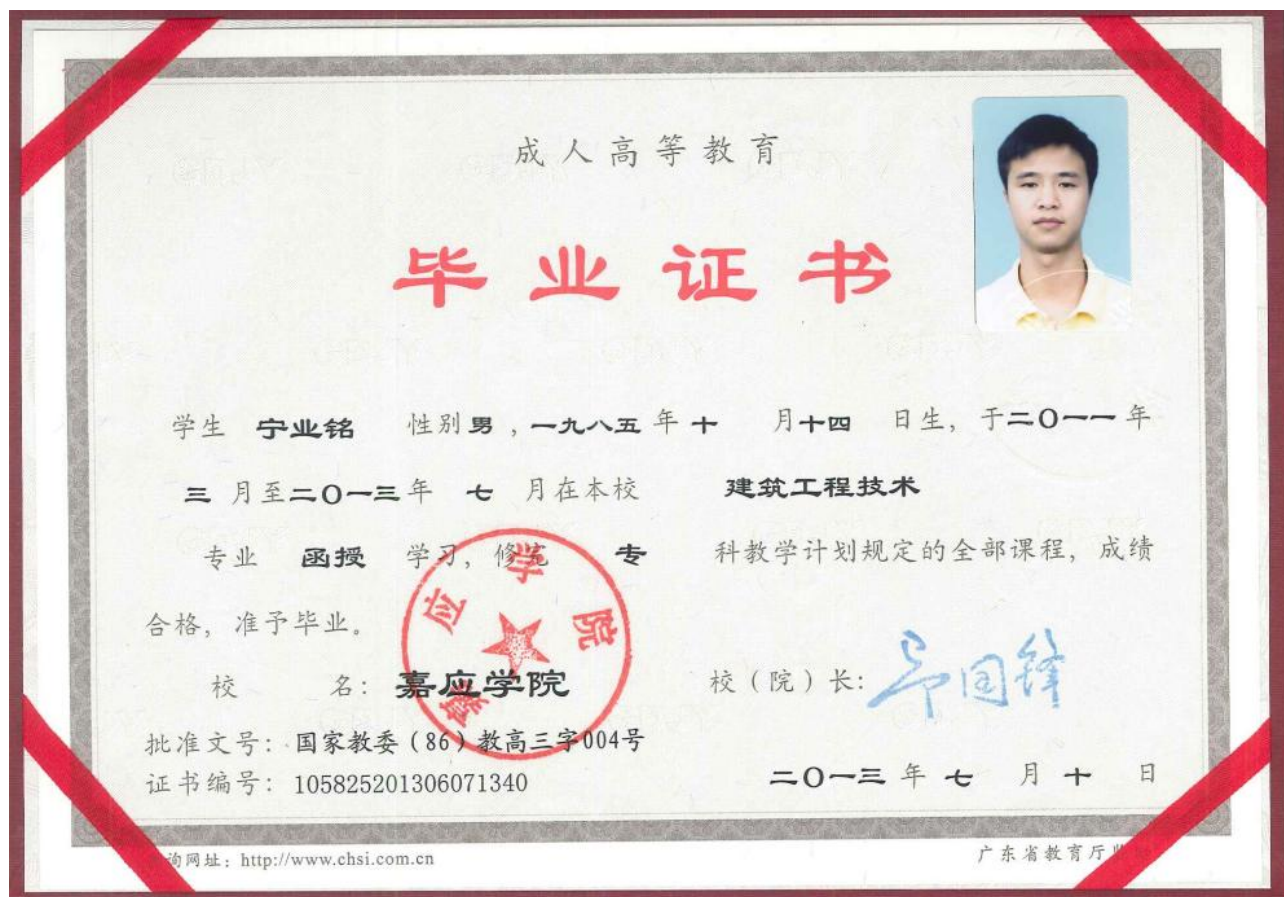 成人高等教育
毕业证书
学生 宁业铭 性别男，一九八五年十 月十四 日生，于二〇一一年
三 月至二〇一三年 七 月在本校 建筑工程技术
专业 函授 学习，修完 专 科教学计划规定的全部课程，成绩
合格，准予毕业。
校 名：嘉应学院 校（院）长：
嘉应学院
批准文号：国家教委（86）教高三字004号
证书编号：105825201306071340 二〇一三年七 月十 日
询网址：http://www.chsi.com.cn 广东省教育厅